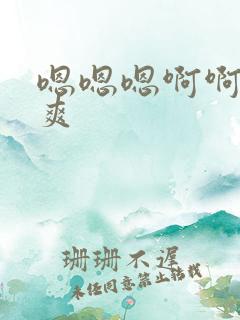 嗯嗯嗯啊啊
爽
珊珊不遅
未经同意禁止转载